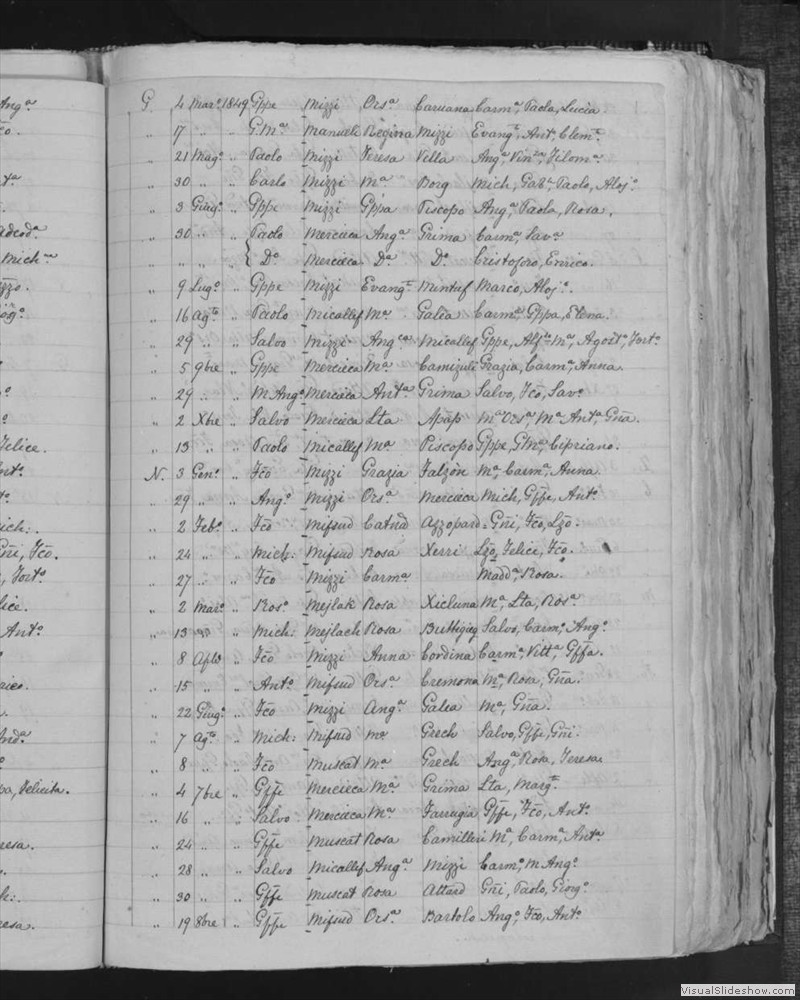 Ang.ª
Felice.
Ant.º
Teresa.
G. 4 Mar.º 1849 Gppe Mizzi Ors.ª Caruana Carm.ª, Paola, Lucia
" 17 " " G.M.ª Manuele Regina Mizzi Evang.ta, Ant.º, Clem.te
" 21 Mag.º " Paolo Mizzi Teresa Vella Ang.ª, Vin.za, Filom.ª
" 30 " " Carlo Mizzi M.ª Borg Mich, Gab.e, Paolo, Aloj.º
" 3 Giug.º " Gppe Mizzi Gppa Piscopo Ang.ª, Paola, Rosa.
" 30 " " Paolo Mercieca Ang.ª Grima Carm.ª, Sav.ª
" " " { D.º Mercieca D.ª D.º Cristoforo, Enrico.
" 9 Lug.º " Gppe Mizzi Evang.ta Mintuf Marco, Aloj.º
" 16 Ag.to " Paolo Micallef M.ª Galea Carm.ª, Gppa, Elena.
" 29 " " Salvo Mizzi Ang.ca Micallef Gppe, Alf.to M.ª, Agost.º, Fort.º
" 5 9bre " Gppe Mercieca M.ª Camizuli Grazia, Carm.ª, Anna
" 29 " M.Ang.º Mercieca Ant.ª Grima Salvo, Fcõ, Sav.º
" 2 Xbre " Salvo Mercieca Lta Apap M.ª Ors.ª, M.ª Ant.ª, Gña.
" 13 " " Paolo Micallef M.ª Piscopo Gppe, G.M.ª, Cipriano.
N. 3 Gen.º " Fcõ Mizzi Grazia Falzon M.ª, Carm.ª, Anna.
" 29 " " Ang.º Mizzi Ors.ª Mercieca Mich, Gffe, Ant.º
" 2 Feb.º " Fcõ Mifsud Catnã Azzopard= Gñi, Fcõ, Lzõ.
" 24 " Mich: Mifsud Rosa Xerri Lzõ, Felice, Fcõ.
" 27 " Fcõ Mizzi Carm.ª Madd.ª, Rosa.
" 2 Mar.º " Ros.º Mejlak Rosa Xicluna M.ª, Lta, Ros.ª
" 13 " " Mich: Mejlach Rosa Buttigieg Salvo, Carm.º, Ang.º
" 8 Aple " Fcõ Mizzi Anna Cordina Carm.ª, Vitt.ª, Gffa.
" 15 " " Ant.º Mifsud Ors.ª Cremona M.ª, Rosa, Gña.
" 22 Giug.º " Fcõ Mizzi Ang.ª Galea M.ª, Gña.
" 7 Ag.to " Mich: Mifsud M.ª Grech Salvo, Gffe, Gñi.
" 8 " " Fcõ Muscat M.ª Grech Ang.ª, Rosa, Teresa.
" 4 7bre " Gffe Mercieca M.ª Grima Lta, Marg.ta
" 16 " " Salvo Mercieca M.ª Farrugia Gffe, Fcõ, Ant.º
" 24 " " Gffe Muscat Rosa Camilleri M.ª, Carm.ª, Ant.ª
" 28 " " Salvo Micallef Ang.ª Mizzi Carm.º, M.Ang.º
" 30 " " Gffe Muscat Rosa Attard Gñi, Paolo, Giorg.º
" 19 8bre " Gffe Mifsud Ors.ª Bartolo Ang.º, Fcõ, Ant.º
VisualSlideshow.com